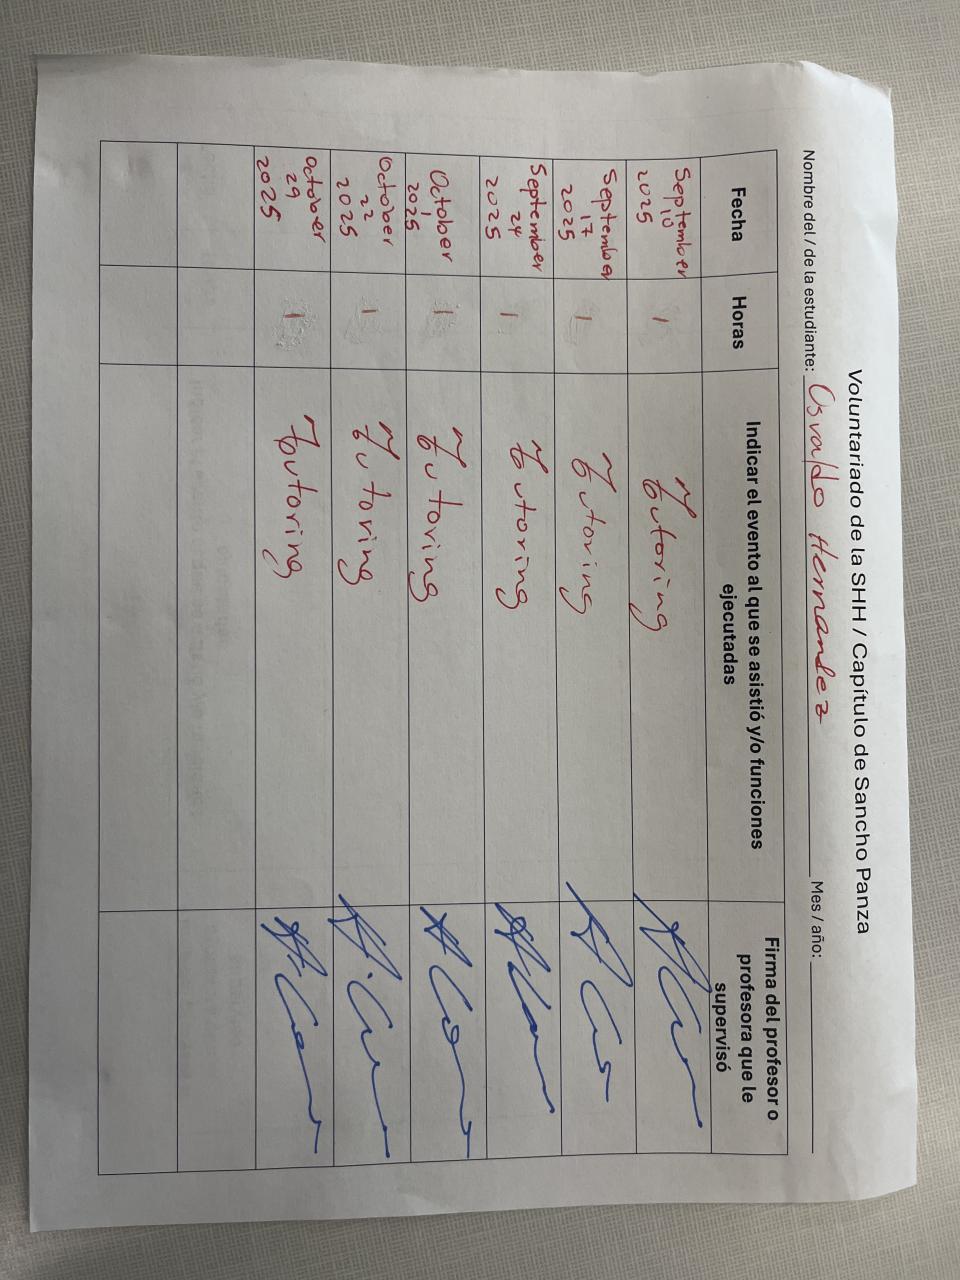 Voluntariado de la SHH / Capítulo de Sancho Panza
Nombre del / de la estudiante: Osvaldo Hernandez Mes / año:
Fecha
Horas
Indicar el evento al que se asistió y/o funciones
ejecutadas
Firma del profesor o
profesora que le
supervisó
September
10
2025
1
Tutoring
September
17
2025
1
Tutoring
September
24
2025
1
Tutoring
October
1
2025
1
Tutoring
October
22
2025
1
Tutoring
October
29
2025
1
Tutoring